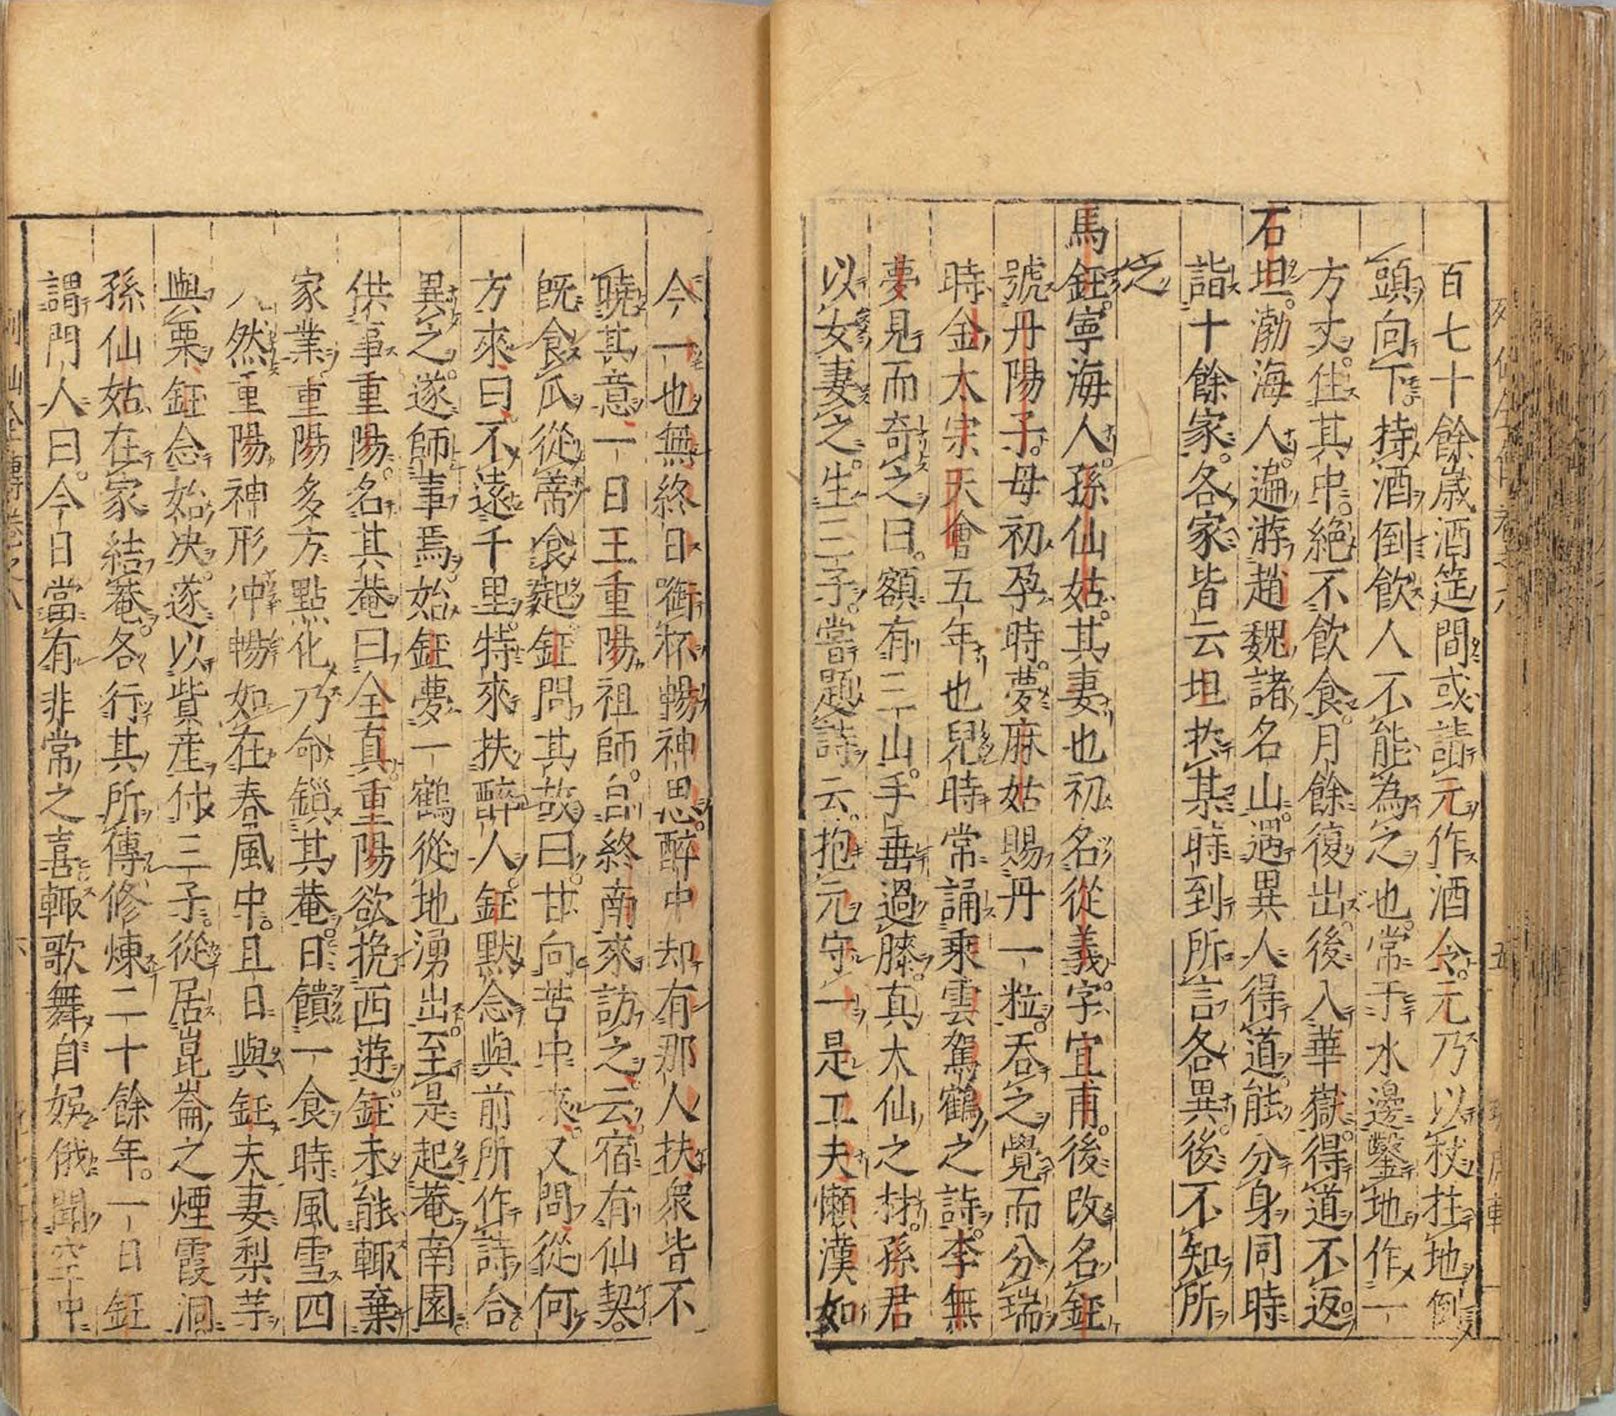 百七十餘歲酒筵間或請元作酒令元乃以杖拄地倒
頭向下持酒倒飲人不能為之也常于水邊鑿地作一
方丈住其中絕不飲食月餘復出後入華嶽得道不返
石坦渤海人遍游趙魏諸名山遇異人得道能分身同時
詣十餘家各家皆云坦於某時到所言各異後不知所
之
馬鈺寧海人孫仙姑其妻也初名從義字宜甫後改名鈺
號丹陽子母初孕時夢麻姑賜丹一粒吞之覺而分瑞
時金太宗天會五年也兒時常誦乘雲駕鶴之詩李無
夢見而奇之曰額有三山手垂過膝真大仙之材孫君
以女妻之生三子嘗題詩云抱元守一是工夫懶漢如
今一也無終日銜杯暢神思醉中却有那人扶衆皆不
曉其意一日王重陽祖師自終南來訪之云宿有仙契
既食瓜從蒂食起鈺問其故曰甘向苦中來又問從何
方來曰不遠千里特來扶醉人鈺默念與前所作詩合
異之遂師事焉始鈺夢一鶴從地湧出至是起菴南園
供事重陽名其菴曰全真重陽欲挽西遊鈺未能輙棄
家業重陽多方點化乃命鎖其菴日饋一食時風雪四
入然重陽神形冲暢如在春風中且日與鈺夫妻梨芋
與栗鈺念始决遂以貲産付三子從居崑崙之煙霞洞
孫仙姑在家結菴各行其所傳修煉二十餘年一日鈺
謂門人曰今日當有非常之喜輙歌舞自娛俄聞空中
列仙全傳卷之八